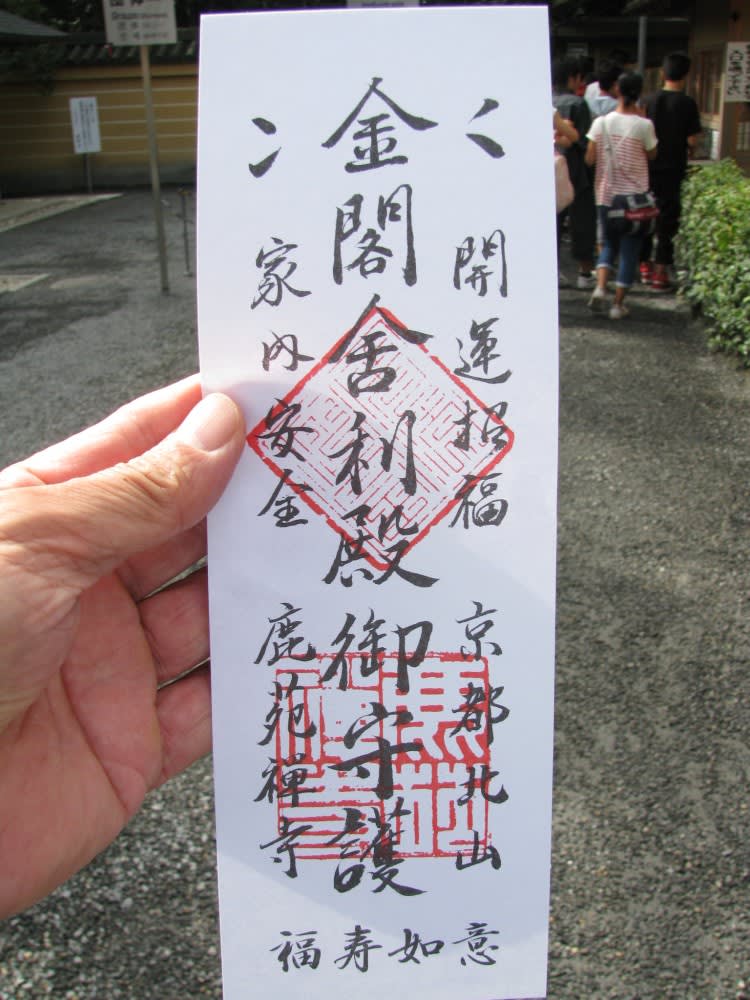 開運招福 京都北山
金閣舎利殿御守護
家内安全 鹿苑禅寺
意如寿福